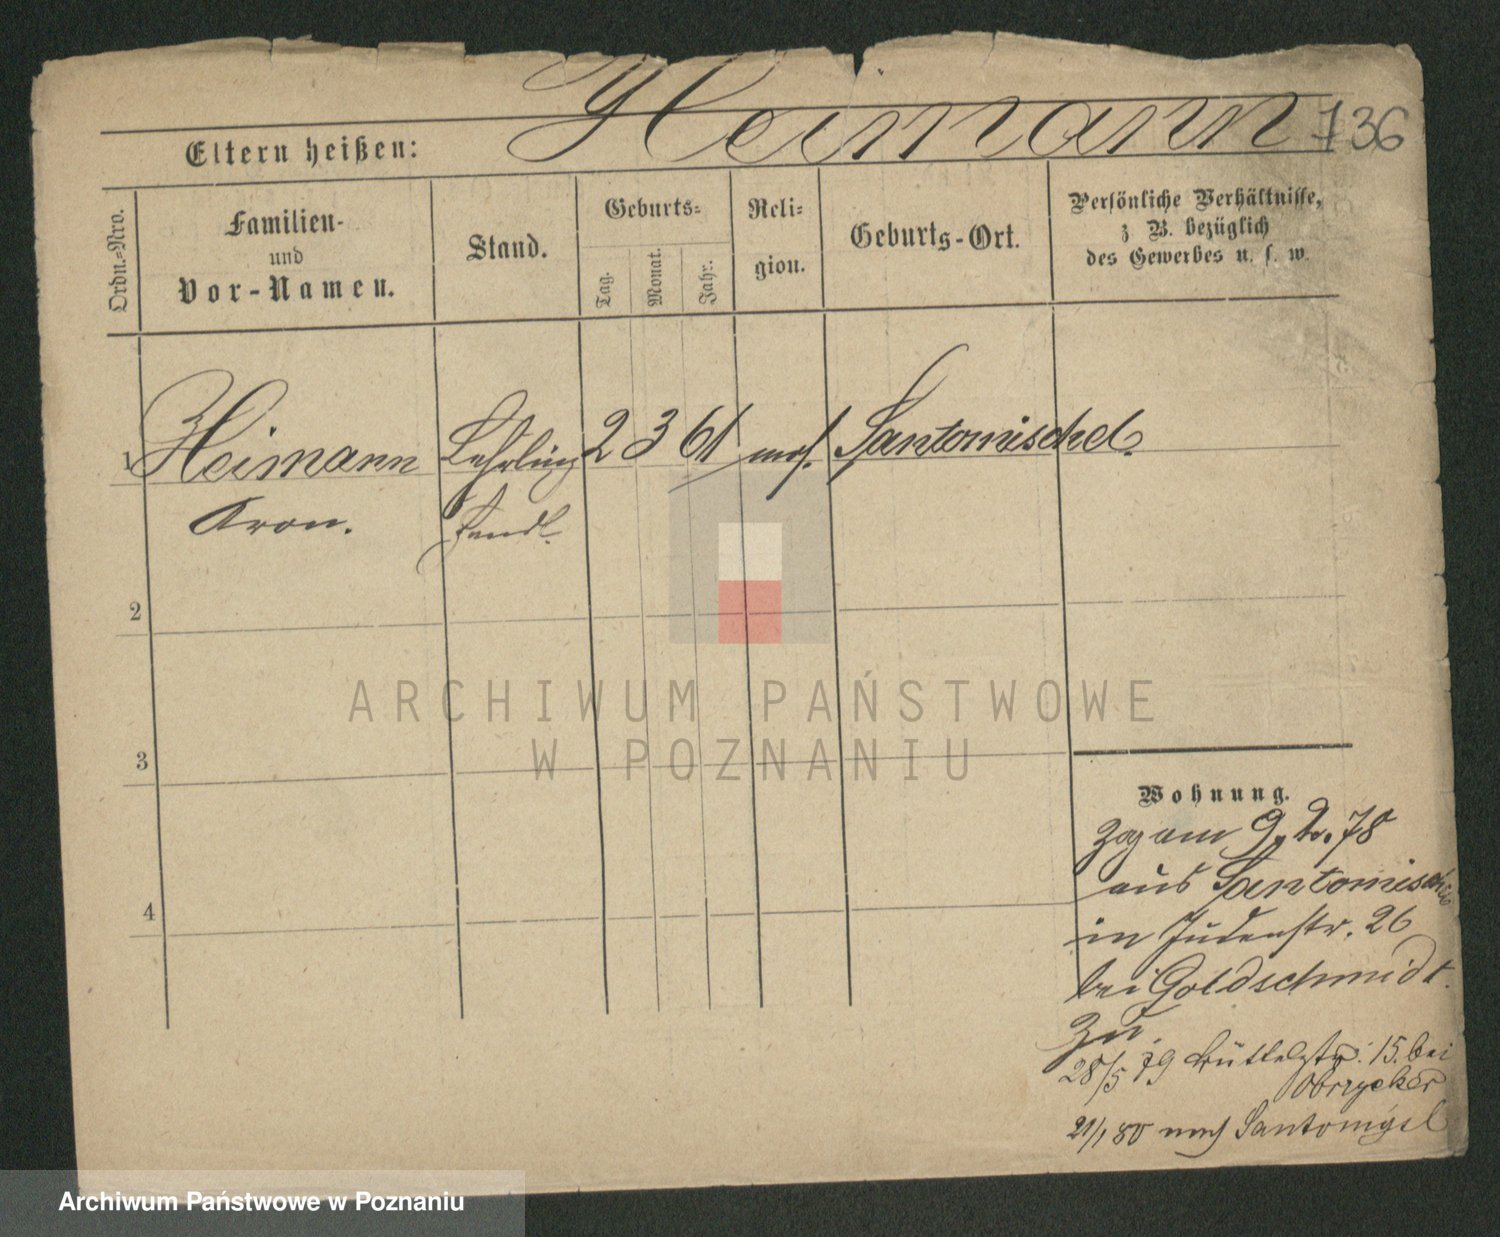 Heimann 736
Eltern heißen:
Ordn.-Nro.
Familien-
und
Vor-Namen.
Stand.
Geburts-
Tag.
Monat.
Jahr.
Reli-
gion.
Geburts-Ort.
Persönliche Verhältnisse,
z B. bezüglich
des Gewerbes u. s. w.
1 Heimann Lehrling 2 3 61 mos. Santomischel.
Aron.
2
3
4
ARCHIWUM PAŃSTWOWE
W POZNANIU
Wohnung.
Zog am 9. 2. 78
aus Santomischel
in Judenstr. 26
bei Goldschmidt.
Zu.
28/5 79 Büttelstr. 15. bei
Obrzycker
21/1 80 nach Santomysl
Archiwum Państwowe w Poznaniu